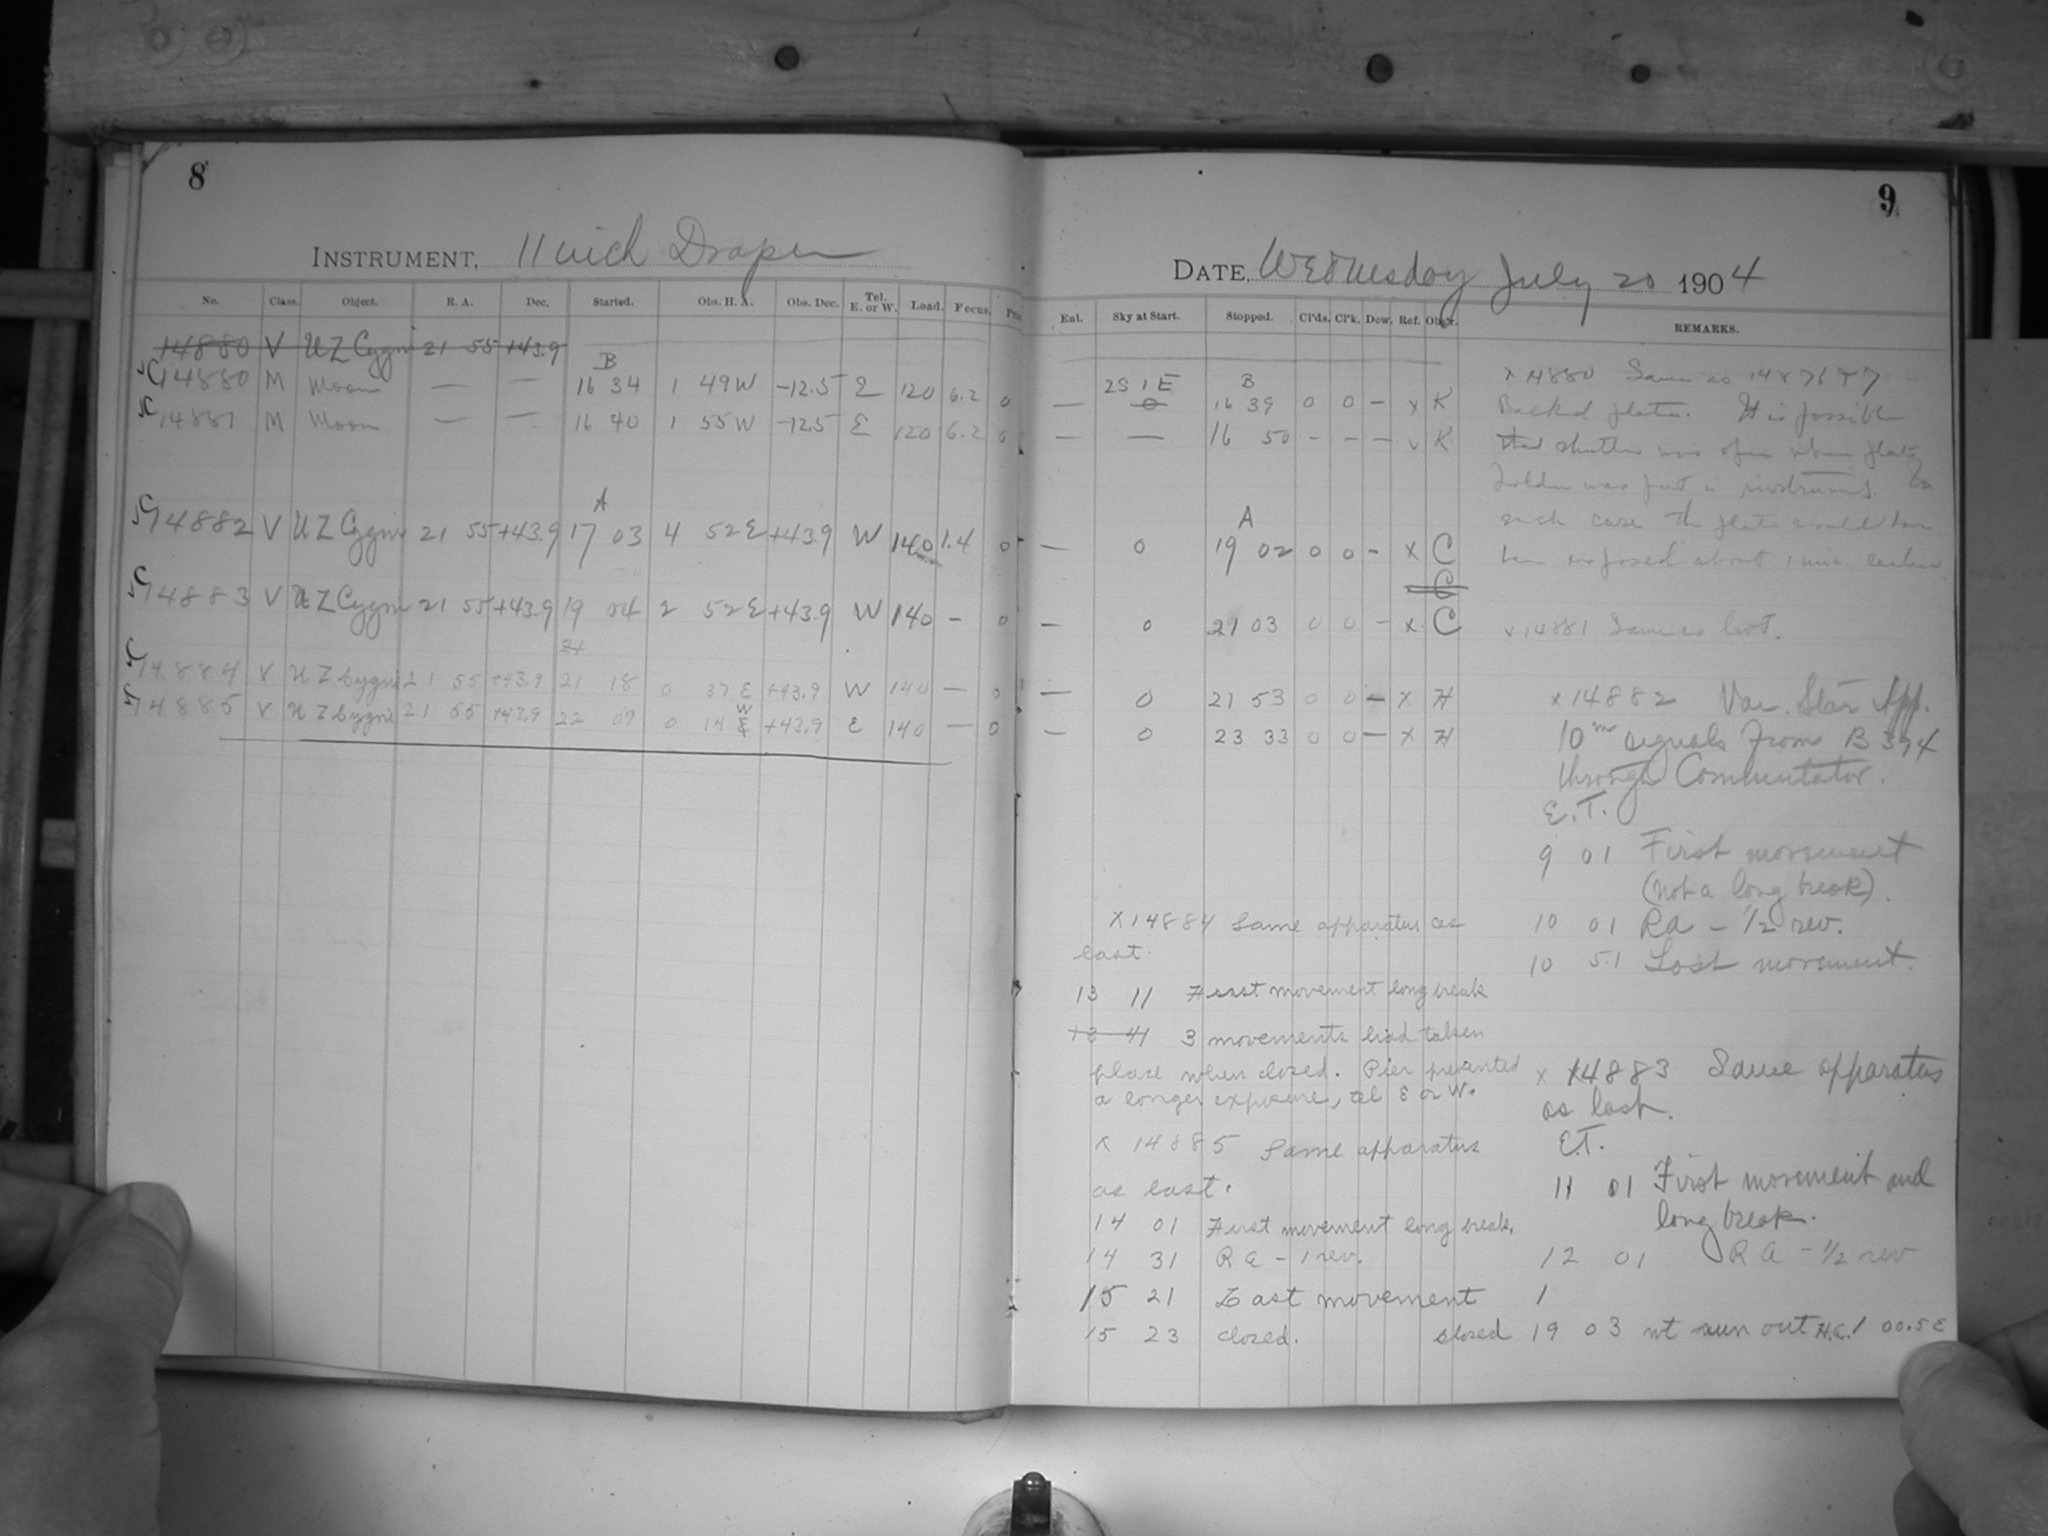 8
INSTRUMENT, 11 inch Draper
No. Class. Object. R. A. Dec. Started. Obs. H. A. Obs. Dec. Tel. E. or W. Load. Focus.
14880 V UZ Cygni 21 55 +43.9
B
14880 M Moon — — 16 34 1 49W -12.5 E 120 6.2 0
14881 M Moon — — 16 40 1 55W -12.5 E 120 6.2 0
A
14882 V UZ Cygni 21 55 +43.9 17 03 4 52E +43.9 W 140 1.4 0
14883 V UZ Cygni 21 55 +43.9 19 04 2 52E +43.9 W 140 — 0
14884 V UZ Cygni 21 55 +43.9 21 18 0 37 E +43.9 W 140 — 0
W
14885 V UZ Cygni 21 55 +43.9 22 09 0 14 E +43.9 E 140 — 0
9
DATE, Wednesday July 20 1904
Enl. Sky at Start. Stopped. Cl'ds. Cl'k. Dew. Ref. Obs'r. REMARKS.
2S 1E B
— 0 16 39 0 0 — x K
— — 16 50 — — — v K
A
— 0 19 02 0 0 — x C
C
— 0 21 03 0 0 — x C
— 0 21 53 0 0 — x H
— 0 23 33 0 0 — x H
x 14880 Same as 14876 + 7
Backed plate. It is possible
that shutter was open when plate
holder was put in instrument. In
such case the plate would have
been exposed about 1 min. earlier
x 14881 Same as last.
x 14882 Var. Star App.
10m signals from B 394
through Commutator.
E.T.
9 01 First movement
(not a long break).
10 01 Ra - 1/2 rev.
10 51 Last movement.
x 14883 Same apparatus
as last.
E.T.
11 01 First movement and
long break.
12 01 R A - 1/2 rev
1
closed 19 03 wt run out H.A. 1 00.5 E
x 14884 Same apparatus as
last.
13 11 First movement long break
13 41 3 movements had taken
place when closed. Pier prevented
a longer exposure, tel E or W.
x 14885 Same apparatus
as last.
14 01 First movement long break.
14 31 R a - 1 rev.
15 21 Last movement
15 23 closed.